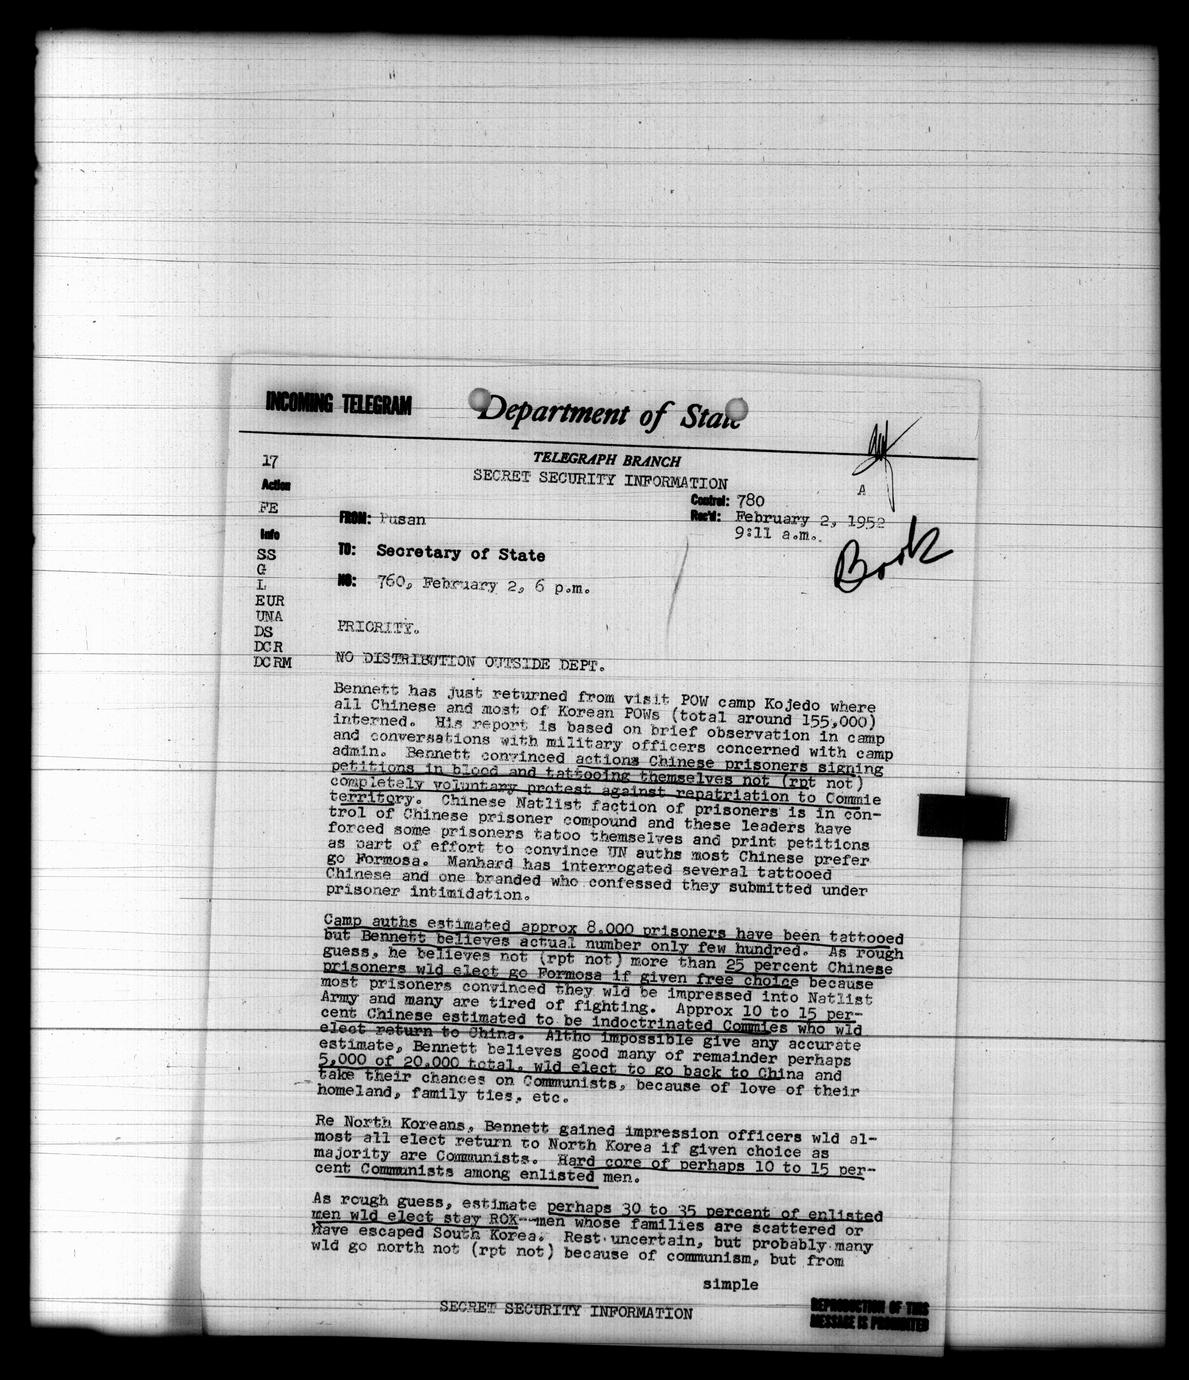 INCOMING TELEGRAM
Department of State
TELEGRAPH BRANCH
SECRET SECURITY INFORMATION
17
Action
FE
Info
SS
G
L
EUR
UNA
DS
DCR
DCRM
A
Control: 780
Rec'd: February 2, 1952
9:11 a.m.
Book
FROM: Pusan
TO: Secretary of State
NO: 760, February 2, 6 p.m.
PRIORITY.
NO DISTRIBUTION OUTSIDE DEPT.
Bennett has just returned from visit POW camp Kojedo where
all Chinese and most of Korean POWs (total around 155,000)
interned. His report is based on brief observation in camp
and conversations with military officers concerned with camp
admin. Bennett convinced actions Chinese prisoners signing
petitions in blood and tattooing themselves not (rpt not)
completely voluntary protest against repatriation to Commie
territory. Chinese Natlist faction of prisoners is in con-
trol of Chinese prisoner compound and these leaders have
forced some prisoners tatoo themselves and print petitions
as part of effort to convince UN auths most Chinese prefer
go Formosa. Manhard has interrogated several tattooed
Chinese and one branded who confessed they submitted under
prisoner intimidation.
Camp auths estimated approx 8,000 prisoners have been tattooed
but Bennett believes actual number only few hundred. As rough
guess, he believes not (rpt not) more than 25 percent Chinese
prisoners wld elect go Formosa if given free choice because
most prisoners convinced they wld be impressed into Natlist
Army and many are tired of fighting. Approx 10 to 15 per-
cent Chinese estimated to be indoctrinated Commies who wld
elect return to China. Altho impossible give any accurate
estimate, Bennett believes good many of remainder perhaps
5,000 of 20,000 total, wld elect to go back to China and
take their chances on Communists, because of love of their
homeland, family ties, etc.
Re North Koreans, Bennett gained impression officers wld al-
most all elect return to North Korea if given choice as
majority are Communists. Hard core of perhaps 10 to 15 per-
cent Communists among enlisted men.
As rough guess, estimate perhaps 30 to 35 percent of enlisted
men wld elect stay ROK--men whose families are scattered or
have escaped South Korea. Rest uncertain, but probably many
wld go north not (rpt not) because of communism, but from
simple
SECRET SECURITY INFORMATION
REPRODUCTION OF THIS
MESSAGE IS PROHIBITED